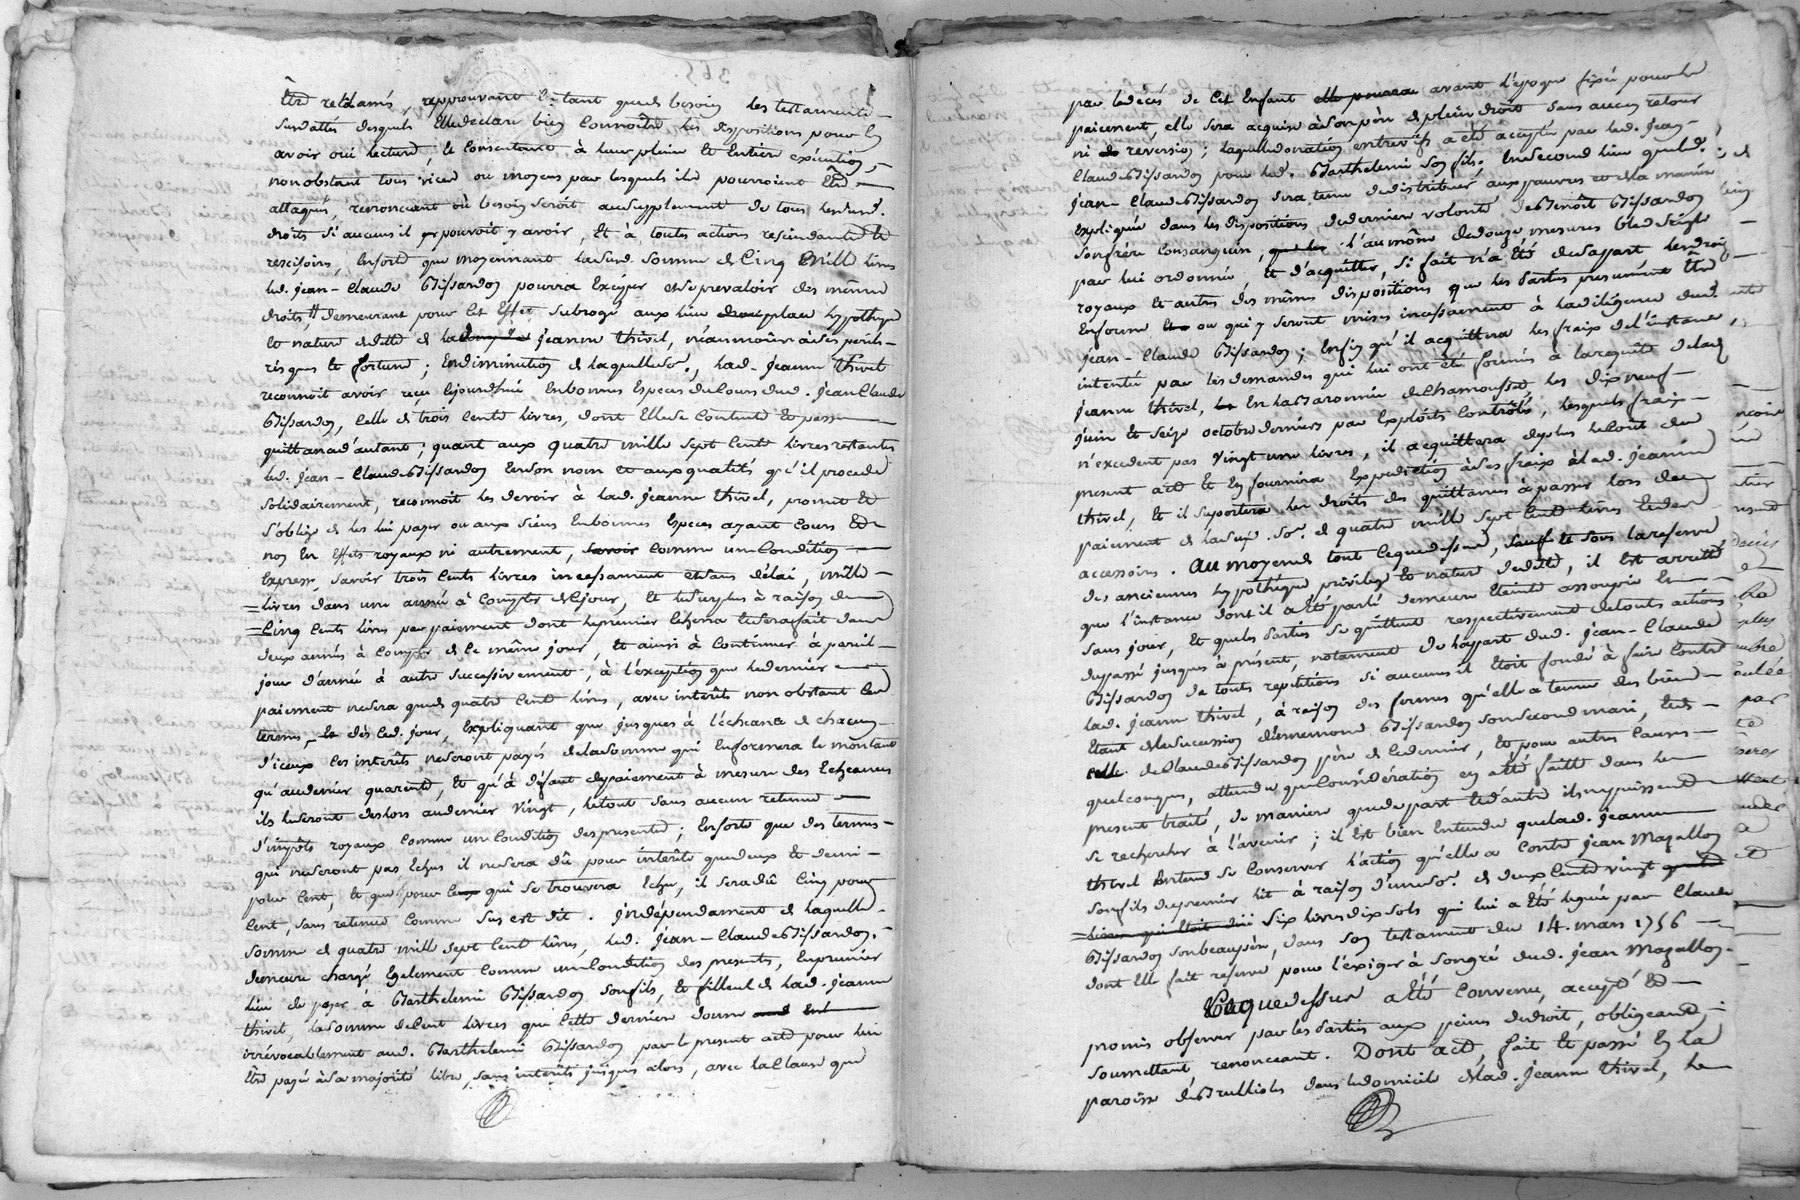 Etre reclamés, approuvant Entant quede besoin les testaments
susdattés desquels Elle declare bien Connoitre les dispositions pour En
avoir oui lecture, Et Consentence à leur pleine Et Entiere exécution,
nonobstant tous vices ou moyens par lesquels ils pourroient Etre
attaqués, renonceant où besoin seroit au supplement de tous lessusd.
droits si aucuns il pouvoit y avoir, Et à toutes actions rescindantes Et
rescisoires, Ensorte que moyennant lasusd. somme de Cinq mille livres
led. jean-Claude Bissardon pourra Exciper et se prevaloir des mêmes
droits, demeurant pour cet Effet subrogé aux lieu place hypotheque
Et nature dedette de la jeanne thivel, néanmoins à ses perils
risques Et fortune; En diminution de laquelle so., lad. jeanne thivel
reconnoit avoir reçu cejourd'hui Enbonnes Especes du Cours dud. jean Claude
Bissardon, Celle de trois Cents livres, dont Elle se Contente Et passe
quittance d'autant; quant aux quatre mille sept Cents livres restantes
led. jean-Claude Bissardon Enson nom et aux qualités qu'il procede
solidairement, reconnoit les devoir à lad. jeanne thivel, promet Et
s'oblige de les lui payer ou aux siens Enbonnes Especes ayant Cours Et
non En Effets royaux ni autrement, Comme une Condition
Expresse, savoir trois Cents livres incessament et sans délai, mille
livres dans une année à Compter de Cejour, Et le surplus à raison de
Cinq Cents livres par paiement dont le premier Echerra Et sera fait dans
deux années à Compter de Ce même jour, Et ainsi à Continuer à pareil
jour d'année à autre successivement, à l'exception que le dernier
paiement ne sera que de quatre Cents livres, avec interêts non obstant les
termes, dès Ced. jour, Expliquant que jusques à l'écheance de chacun
d'iceux les interêts ne seront payés de la somme qui Enformera le montant
qu'au denier quarente, Et qu'à défaut de paiement à mesure des Echeances
ils le seront deslors au denier vingt, le tout sans aucun retenue
d'impôts royaux Comme une Condition des presentes; Ensorte que des termes
qui ne seront pas Echus il ne sera dû pour interêts que deux Et demi
pour Cent, Et que pour qui se trouvera Echu, il sera dû Cinq pour
Cent, sans retenue Comme sus est dit. jndépendament de laquelle
somme de quatre mille sept Cent livres, led. jean-Claude Bissardon,
demeure chargé Egalement Comme une Condition des presentes, En premier
lieu de payer a Barthelemi Bissardon son fils, Et filleul de lad. jeanne
thivel, la somme de Cent livres que Cette derniere donne
irrévocablement aud. Barthelemi Bissardon par le present acte pour lui
Etre payé à sa majorité libre, sans interêts jusques alors, avec la Clause que
par le décés de Cet Enfant avant l'époque fixée pour le
paiement, elle sera acquise à son père de plein droit sans aucun retour
ni reversion; laquelle donation entrevifs a été acceptée par led. jean
Claude Bissardon pour led. Barthelemi son fils. En second lieu que led.
jean-Claude Bissardon sera tenu de distribuer aux pauvres et de la maniere
Expliquée dans les dispositions de derniere volonté de Benoit Bissardon
son frère Consanguin, l'aumône de douze mesures bled seigle
par lui ordonnée, Et d'acquitter, si fait n'a Eté de sa part les droits
royaux Et autres des mêmes dispositions que les parties presument Etre
Enforme ou qui y seront mises incessamment à la diligence dud.
jean-Claude Bissardon; Enfin qu'il acquittera les fraix de l'instance
intentée par les demandes qui lui ont été formées à la requête de lad.
jeanne thivel, En la Baronnie de Chamousset, les dix neuf
juin Et seize octobre derniers par Exploits Contrôlés, lesquels fraix
n'excedent pas vingt une livres, il acquittera de plus le Coût du
present acte Et En fournira Expedition à ses fraix à lad. jeanne
thivel, Et il suportera les droits des quittances à passer lors du
paiement de lad. so. de quatre mille sept Cent livres Et des
accessoires. Au moyen de tout Ce que dessus, sauf Et sous la reserve
des anciennes hypothéque privilege Et nature de dette, il Est arretté
que l'instance dont il a Eté parlé demeure Eteinte assoupie Et
sans jour, Et que les parties se quittent respectivement de toutes actions
du passé jusques à présent, notament de la part dud. jean-Claude
Bissardon de toutes repetitions si aucunes il Etoit fondé à faire Contre
lad. jeanne thivel, à raison des fermes qu'elle a tenues des biens
Etant de la succession d'Ennemond Bissardon son second mari,
de Claude Bissardon père de Ce dernier, Et pour autres Causes
quelconques, attendu que Considération en a Eté faitte dans le
present traité, de maniere que de part Et d'autre ils ne puissent
se rechercher à l'avenir; il Est bien Entendu que lad. jeanne
thivel Entend se Conserver l'action qu'elle a Contre jean Magallon
son fils du premier lit à raison d'une so. de deux Cents vingt
six livres dix sols qui lui a Eté leguée par Claude
Bissardon son beau père, dans son testament du 14. mars 1756
dont Elle fait reserve pour l'exiger à son gré dud. jean Magallon.
Ce que dessus a Eté Convenu, accepté Et
promis observer par les parties aux peines de droit, obligeant,
soumettant, renonceant. Dont acte, fait Et passé En la
paroisse des Brullioles dans le domicile de lad. jeanne thivel, le